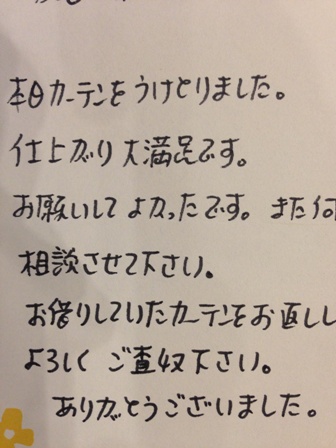 本日カーテンをうけとりました。
仕上がり大満足です。
お願いしてよかったです。また何
相談させて下さい。
お借りしていたカーテンをお返しし
よろしくご査収下さい。
ありがとうございました。